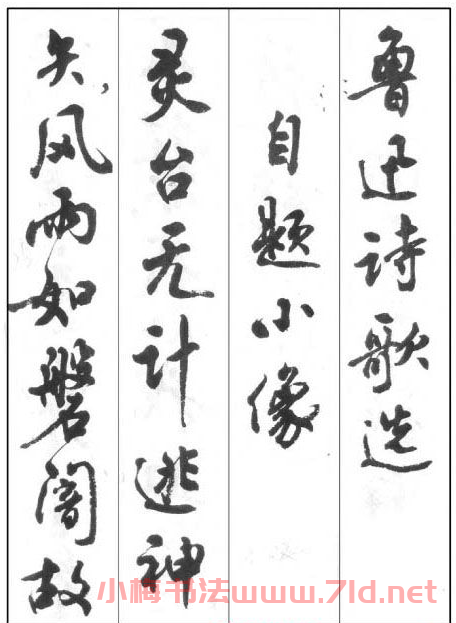 鲁迅诗歌选
自题小像
灵台无计逃神
矢，风雨如磐闇故
小梅书法www.7ld.net